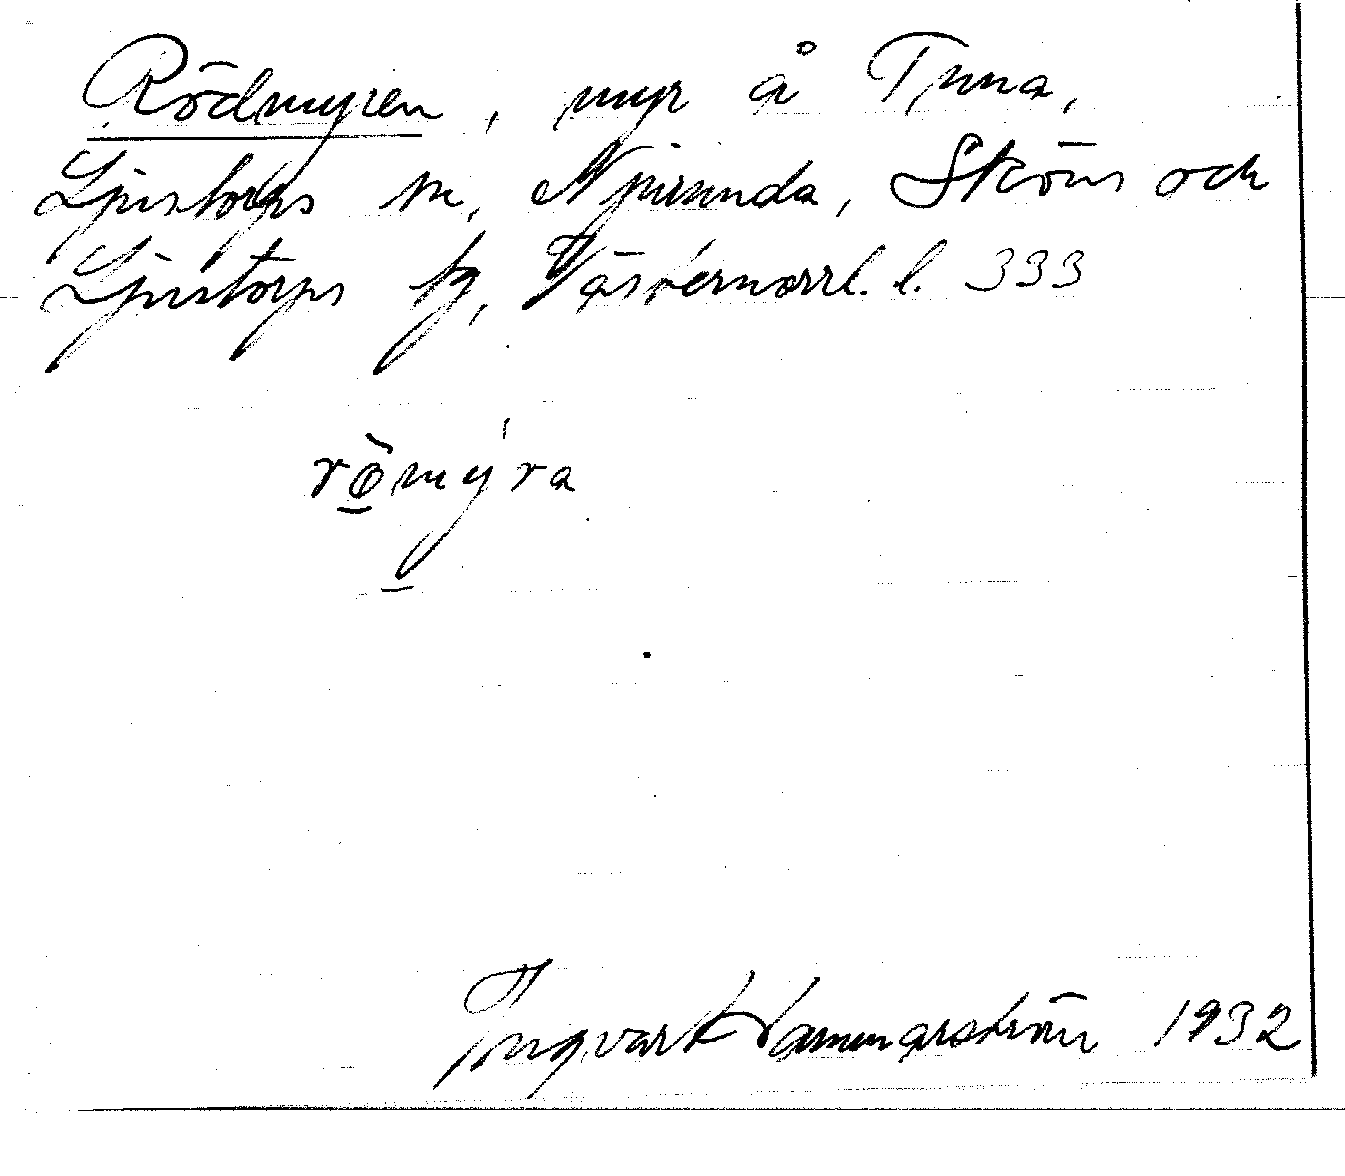 Rödmyren, myr å Tuna,
Ljustorps sn, Njurunda, Sköns och
Ljustorps tg, Västernorrl. l. 333
rò̱mý̱ra
Ingvar Hammarström 1932